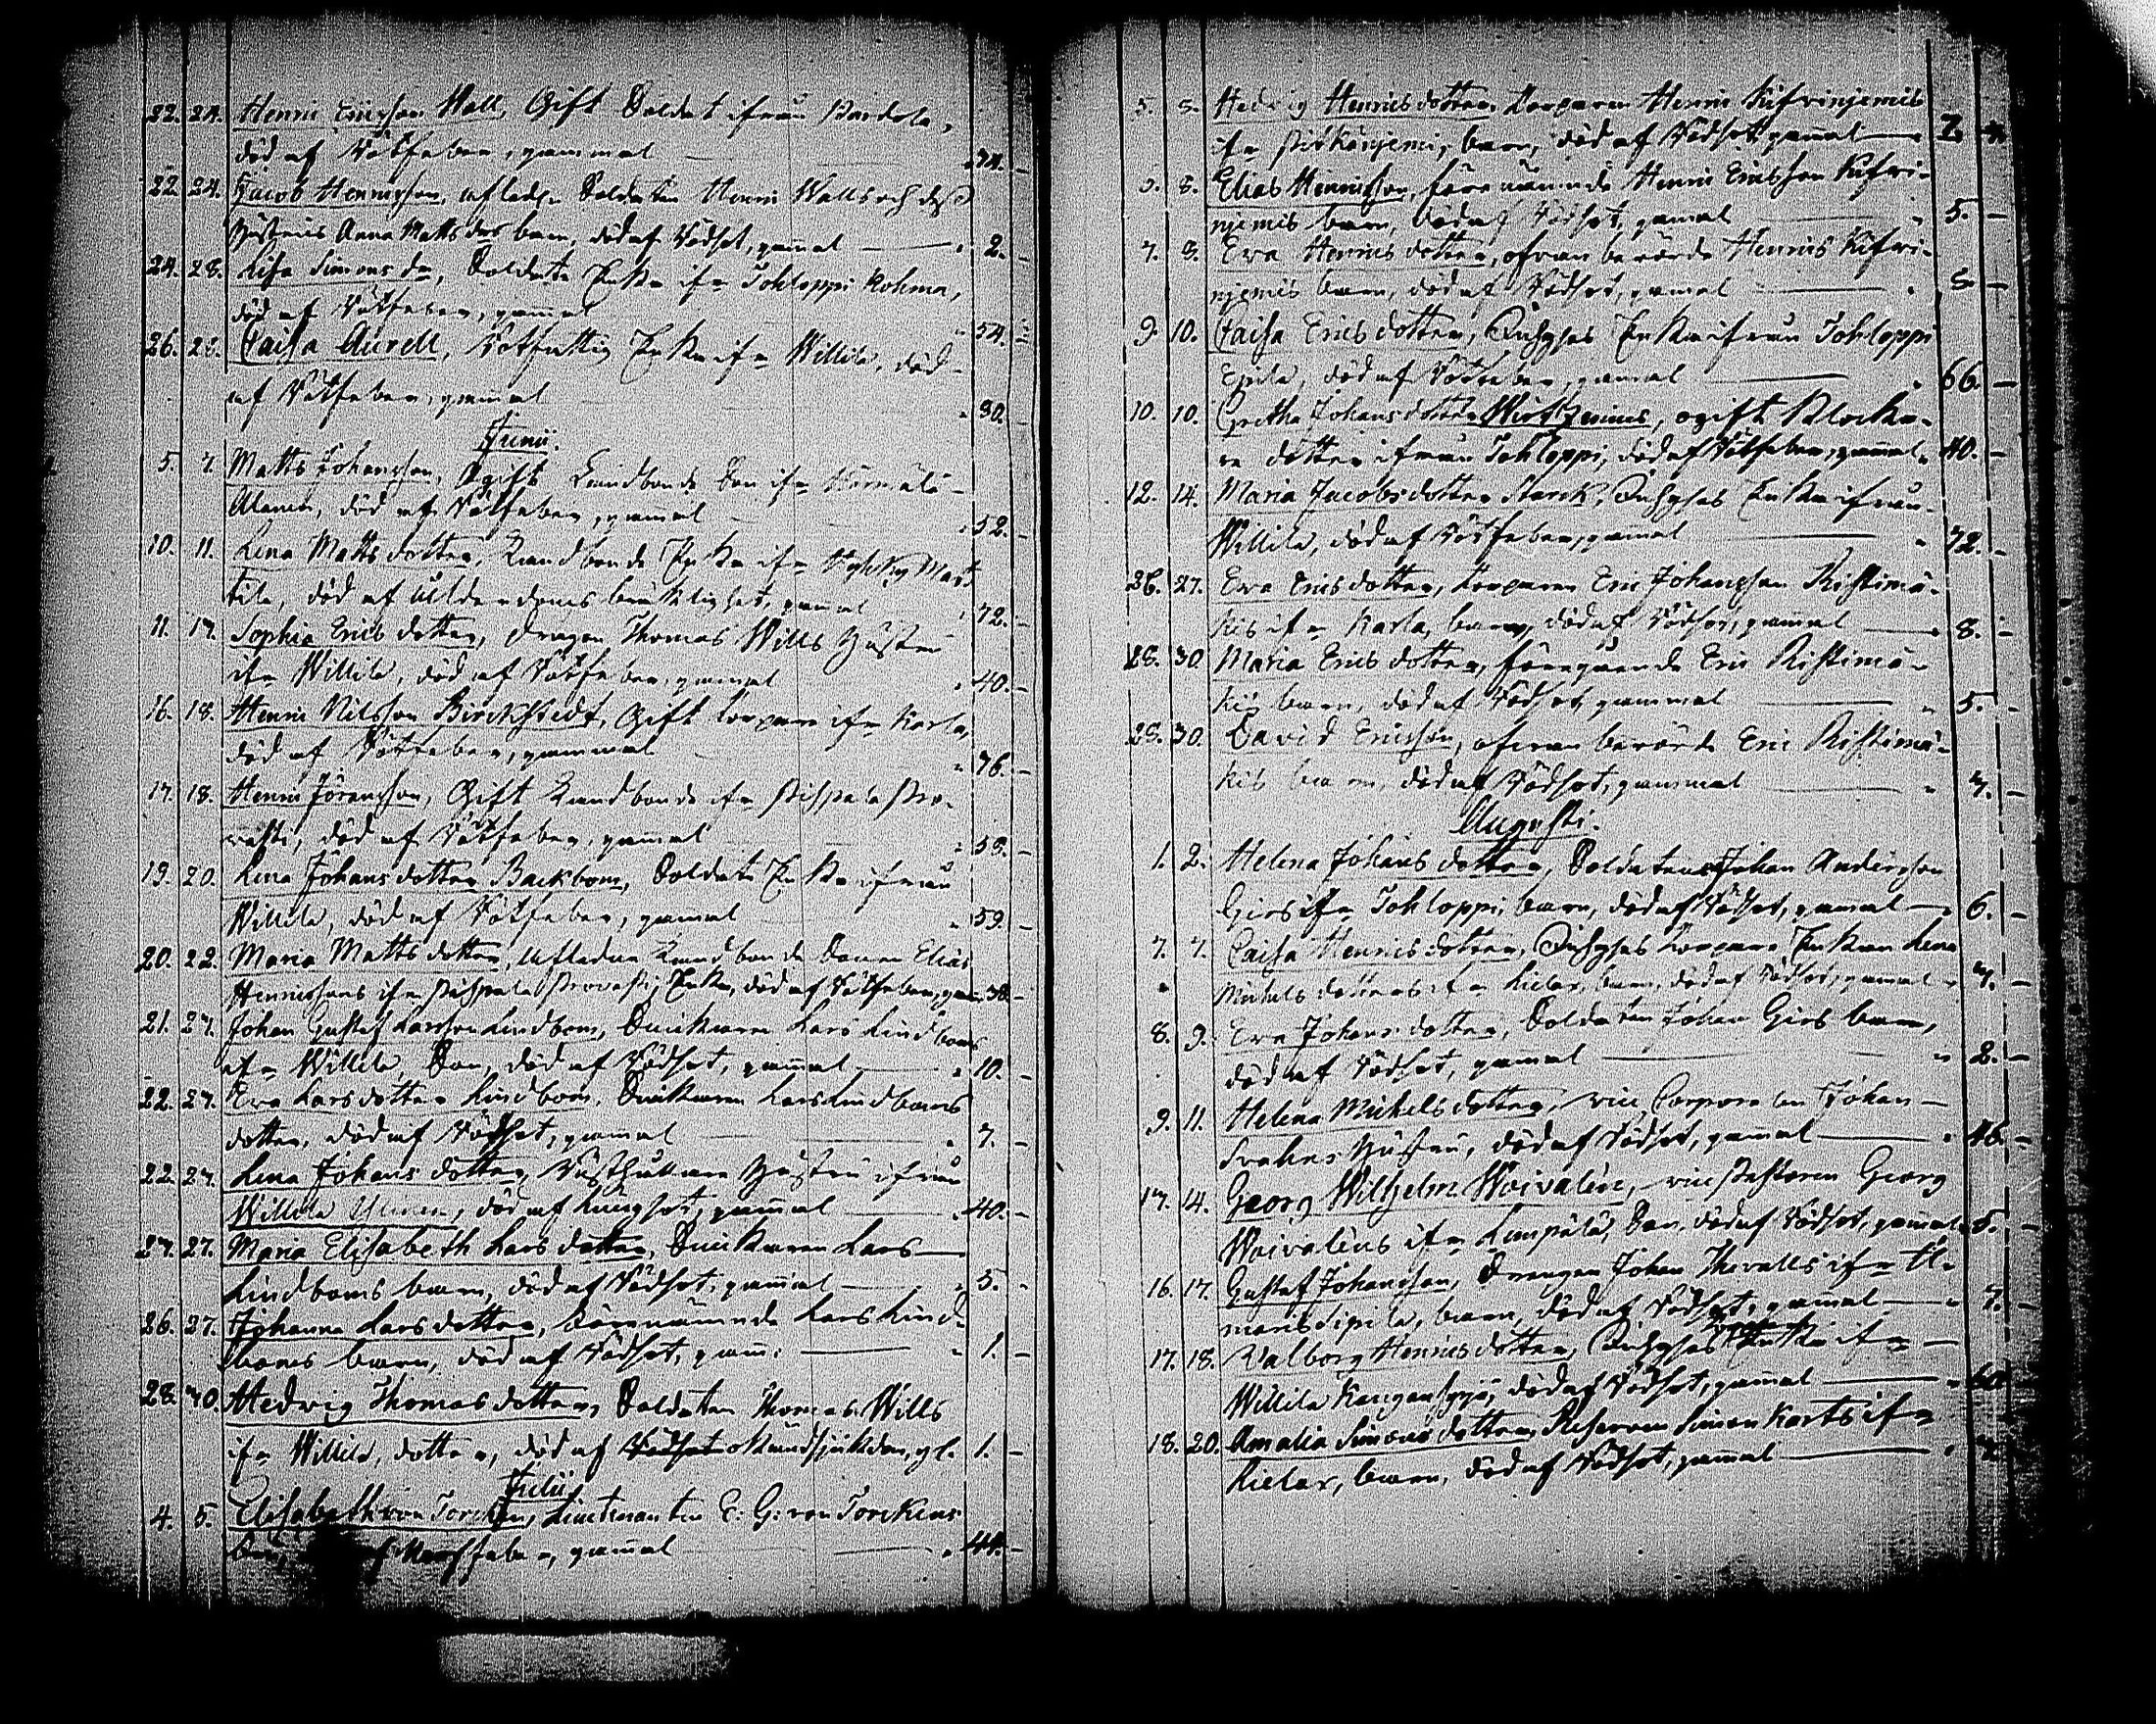 22. 24. Henric Ericsson Wall, Gift Soldat ifrån Pardola,
död af Rötfeber, gammal 74. –
22 24. Jacob Henricsson, afledne Soldaten Henric Walls och dess
Hustrus Anna Matts drs barn, död af Rödsot, gamal 2. –
24. 28. Lisa Simons dr, Soldats Enka ifr Tohloppi Kohma,
död af Rötfeber, gamal 54. –
26. 28. Caisa Aurell, Rotfattig Enka ifr Willila, död
af Rötfeber, gamal 30. –
Junii.
5. 7. Matts Johansson, Ogift Landbonde Son ifr
död af Rötfeber, gamal 52. –
10. 11. Lena Matts dotter, Landbonde Enka ifr Mart
tila, död af Ålderdoms bräcklighet, gamal 72. –
11. 17. Sophia Erics dotter, Dragon Thomas Wills Hustru
ifr Willila, död af Rötfeber, gamal 40. –
16. 18. Henric Nilsson Birckstedt, Gift Torpare ifr Karla,
död af Rötfeber, gammal 76. –
17. 18. Henric Jöransson, Gift Landbonde ifr Pispala Pro-
vasti, död af Rötfeber, gamal 59. –
19. 20. Lena Johans dotter Backbom, Soldats Enka ifrån
Willila, död af Rötfeber, gamal 59. –
20. 22. Maria Matts dotter, Aflednes Landbonde Sonen Elias
Henricssons ifr Pispala Provasti, Enka, död af Rötfeber, gam 38 –
21. 27. Johan Gustaf Larsson Lindbom, Snickaren Lars Lindboms
ifr Willila, Son, död af Rödsot, gamal 10. –
22. 27. Eva Lars dotter Lindbom, Snickaren Lars Lindboms
dotter, död af Rödsot, gamal 7. –
22. 27. Lena Johans dotter, Hustru ifrån
Willila Ulmen, död af Lungsot, gamal 40. –
27. 27. Maria Elisabeth Lars dotter, Snickaren Lars
Lindboms barn, död af Rödsot, gamal 5. –
26. 27. Johanna Lars dotter, bemnämnde Lars Lind-
boms barn, död af Rödsot, gam: 1. –
28. 30. Hedvig Thomas dotter, Soldaten Thomas Wills
ifr Willila, dotter, död af okänd sjukdom, gl. 1. –
Julii
4. 5. Elisabeth von Torcken, Lieutenanten E: G: von Torckens
gamal 44. –
5. 8. Hedvig Henrics dotter, Torparen Henric Kifvinjemis
ifr Pirkänjemi, barn, död af Rödsot gamal 2. 4.
5. 8. Elias Henricsson, förenämnde Henric Ericsson Kifvi-
njemis barn, död af Rödsot, gamal 5. –
7. 8. Eva Henrics dotter, ofvan berörde Henrics Kifvi-
njemis barn, död af Rödsot, gamal 8 –
9. 10. Caisa Erics dotter, Inhyses Enka ifrån Tohloppi
Epila, död af Rötfeber, gamal 66. –
10. 10. Gretha Johans dotter Wirtzenius, ogift Klocka-
re dotter ifrån Tohloppi, död af Rötfeber, gamal 40. –
12. 14. Maria Jacobs dotter Starck, Inhyses Enka ifrån
Willila, död af Rötfeber, gamal 72. –
26. 27. Eva Erics dotter, Torparen Eric Johansson Ristimä-
kis ifr Karla, barn, död af Rödsot, gamal 8. –
28. 30. Maria Erics dotter, föregående Eric Ristimä-
kis barn, död af Rödsot, gammal 5. –
28. 30. David Ericsson, ofvan berörde Eric Ristimä-
kis barn, död af Rödsot, gammal 7. –
Augusti.
1. 2. Helena Johans dotter, Soldatens Johan Andersson
Girs ifr Tohloppi, barn, död af Rödsot, gamal 6. –
7. 7. Caisa Henrics dotter, Inhyses Torpare Enkan Lena
Michels dotters ifr Lielax, barn, död af Rödsot, gamal 7. –
8. 9. Eva Johans dotter, Soldaten Johan Girs barn,
död af Rödsot, gamal 2. –
9. 11. Helena Michels dotter, vice Corporalen Johan
Svahns Hustru, död af Rödsot, gamal 46. –
17. 14. Georg Wilhelm Woivalin, vice Pastoren Georg
Woivalins ifr Lempälä, Son, död af Rödsot, gamal 5. –
16. 17. Gustaf Johansson, Drengen Johan Thevalls ifr Il-
maris Sipila, barn, död af Rödsot, gamal 7. –
17. 18. Walborg Henrics dotter, Inhyses Enka ifr
Willila död af Rödsot, gamal 60
18. 20. Amalia Simons dotter, Reserven Simon Karts ifr
Lielax, barn, död af Rödsot, gamal